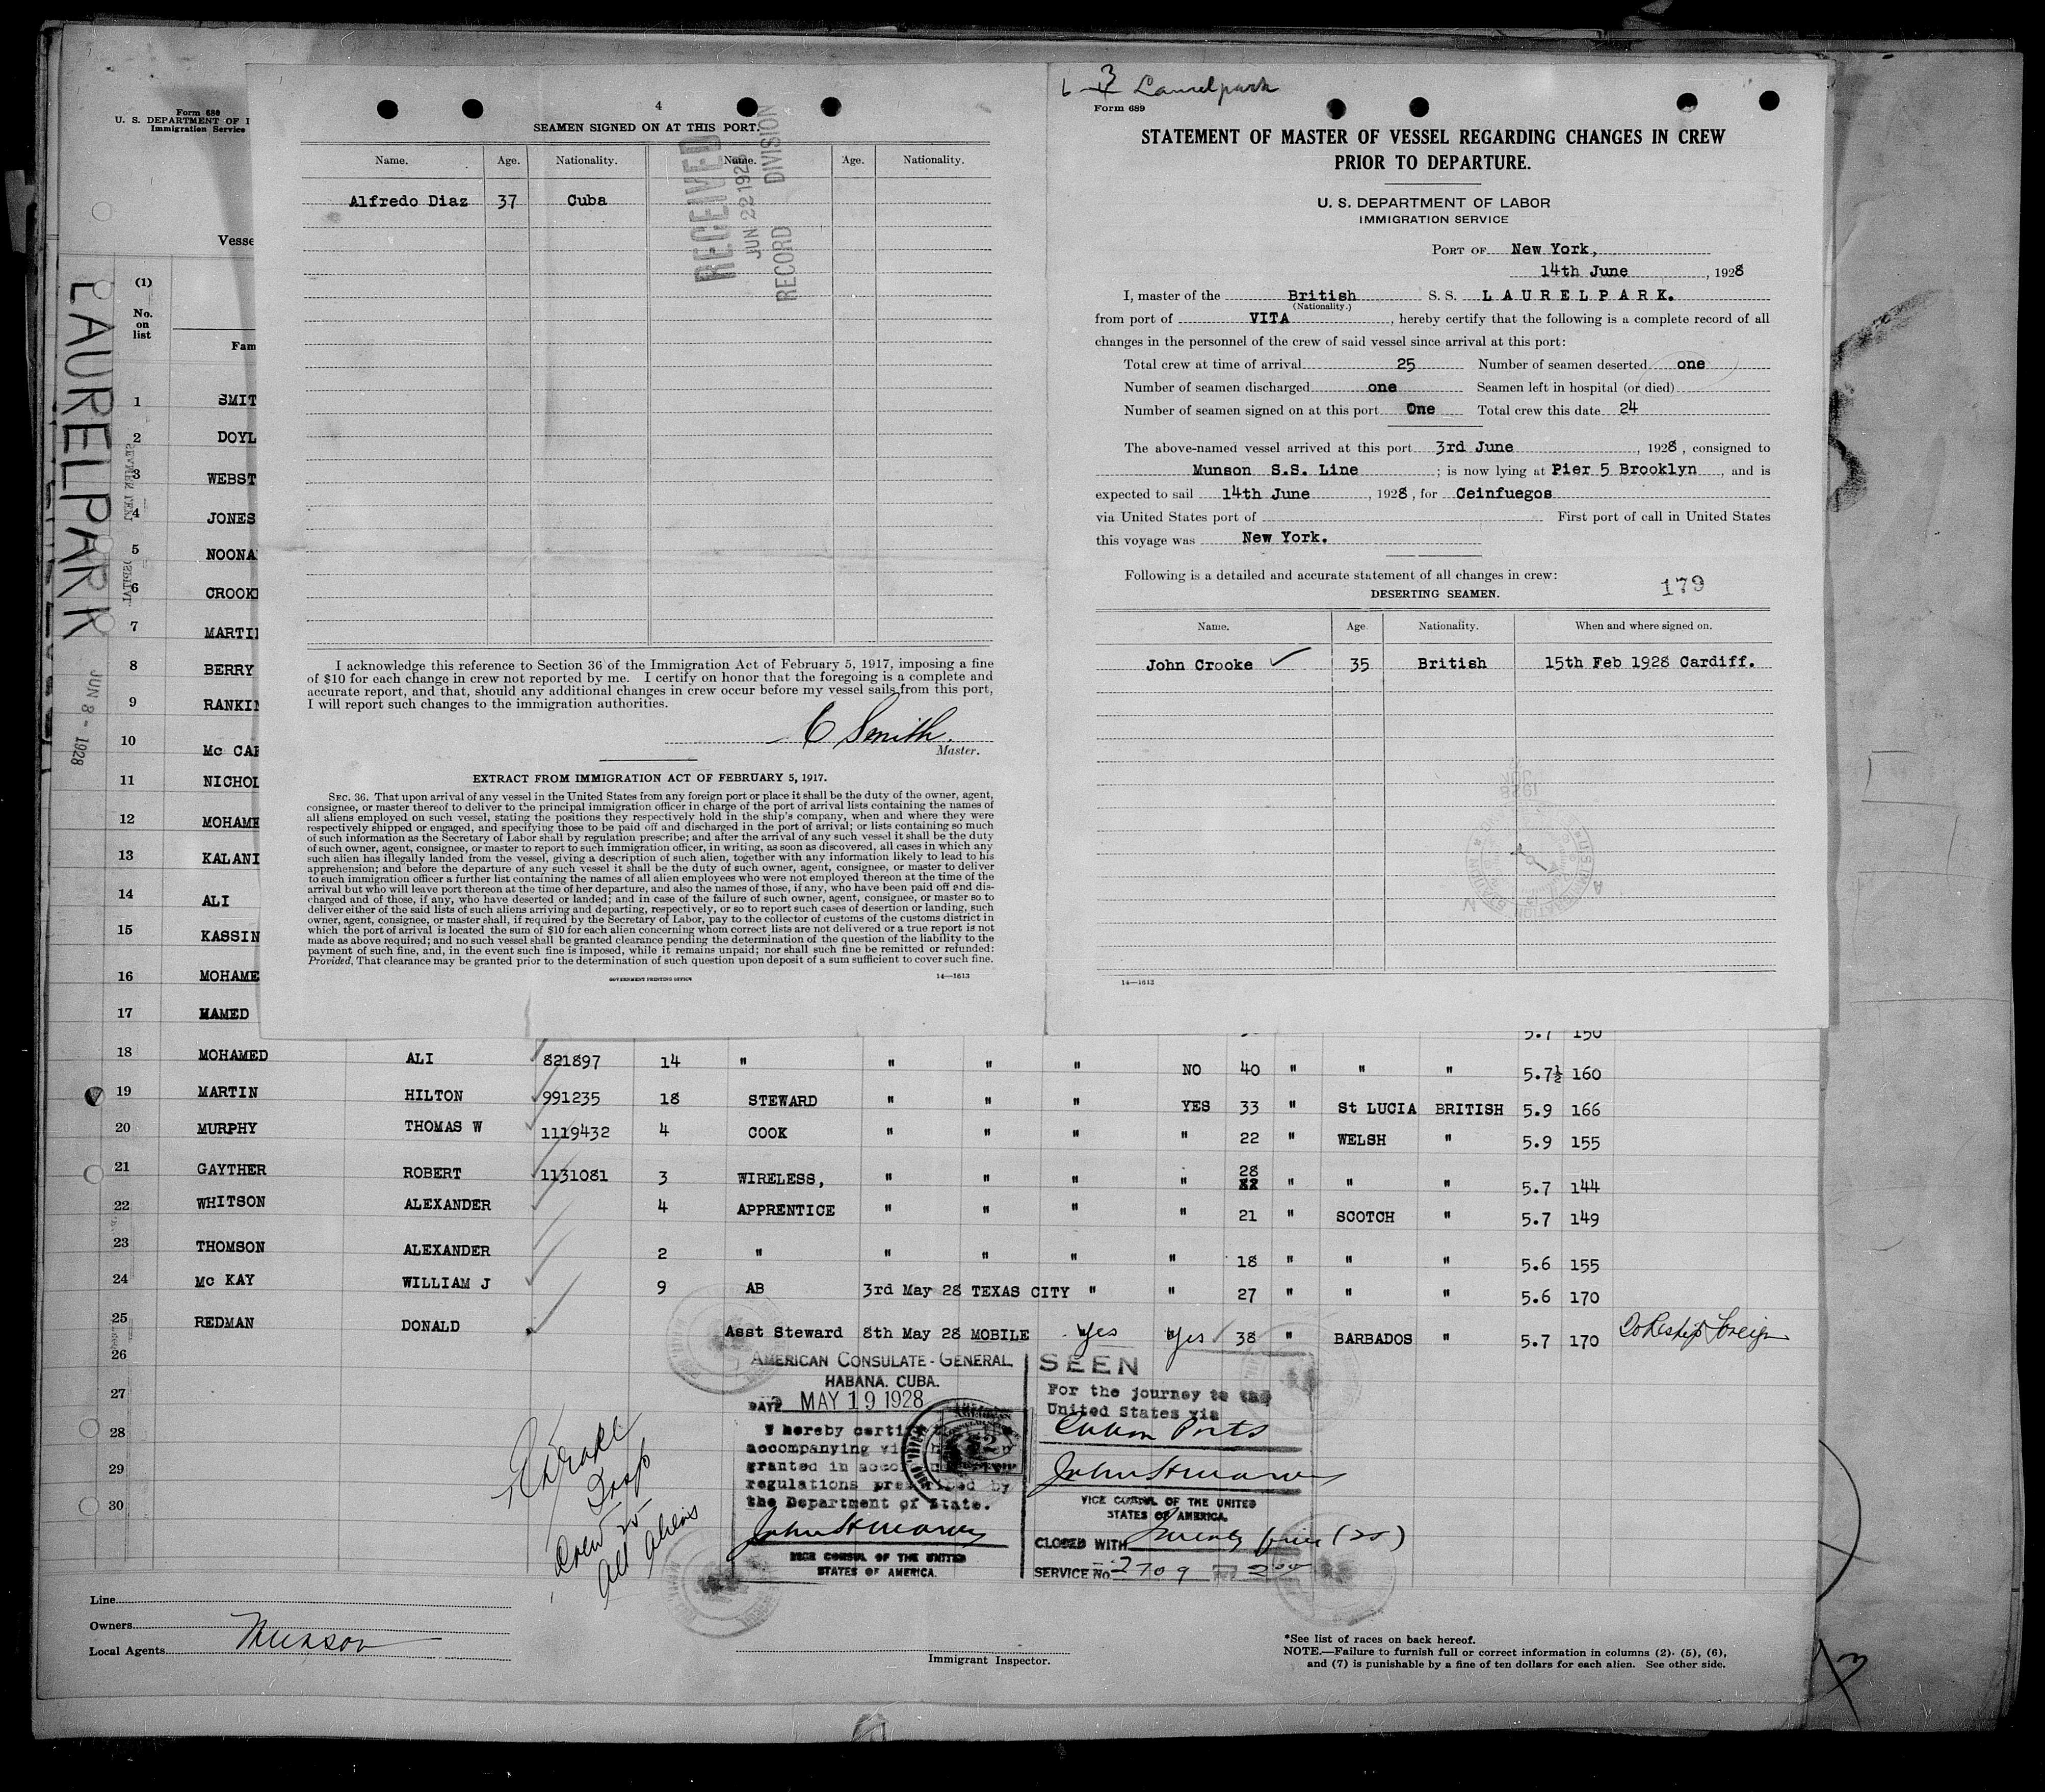 Form 680
U. S. DEPARTMENT OF
Immigration Service
Vesse
LAURELPARK
JUN 8 - 1928
(1)
No.
on
list
Fam
1 SMIT
2 DOYL
3 WEBST
4 JONES
5 NOONA
6 CROOK
7 MARTI
8 BERRY
9 RANKIN
10 Mc CAR
11 NICHOL
12 MOHAME
13 KALANI
14 ALI
15 KASSIN
16 MOHAME
17 MAMED
4
SEAMEN SIGNED ON AT THIS PORT.
Name. Age. Nationality. Name. Age. Nationality.
Alfredo Diaz 37 Cuba
RECEIVED
JUN 22 1928
RECORD DIVISION
I acknowledge this reference to Section 36 of the Immigration Act of February 5, 1917, imposing a fine
of $10 for each change in crew not reported by me. I certify on honor that the foregoing is a complete and
accurate report, and that, should any additional changes in crew occur before my vessel sails from this port,
I will report such changes to the immigration authorities.
C Smith.
Master.
EXTRACT FROM IMMIGRATION ACT OF FEBRUARY 5, 1917.
SEC. 36. That upon arrival of any vessel in the United States from any foreign port or place it shall be the duty of the owner, agent,
consignee, or master thereof to deliver to the principal immigration officer in charge of the port of arrival lists containing the names of
all aliens employed on such vessel, stating the positions they respectively hold in the ship's company, when and where they were
respectively shipped or engaged, and specifying those to be paid off and discharged in the port of arrival; or lists containing so much
of such information as the Secretary of Labor shall by regulation prescribe; and after the arrival of any such vessel it shall be the duty
of such owner, agent, consignee, or master to report to such immigration officer, in writing, as soon as discovered, all cases in which any
such alien has illegally landed from the vessel, giving a description of such alien, together with any information likely to lead to his
apprehension; and before the departure of any such vessel it shall be the duty of such owner, agent, consignee, or master to deliver
to such immigration officer a further list containing the names of all alien employees who were not employed thereon at the time of the
arrival but who will leave port thereon at the time of her departure, and also the names of those, if any, who have been paid off and dis-
charged and of those, if any, who have deserted or landed; and in case of the failure of such owner, agent, consignee, or master so to
deliver either of the said lists of such aliens arriving and departing, respectively, or so to report such cases of desertion or landing, such
owner, agent, consignee, or master shall, if required by the Secretary of Labor, pay to the collector of customs of the customs district in
which the port of arrival is located the sum of $10 for each alien concerning whom correct lists are not delivered or a true report is not
made as above required; and no such vessel shall be granted clearance pending the determination of the question of the liability to the
payment of such fine, and, in the event such fine is imposed, while it remains unpaid; nor shall such fine be remitted or refunded:
Provided, That clearance may be granted prior to the determination of such question upon deposit of a sum sufficient to cover such fine.
GOVERNMENT PRINTING OFFICE 14—1613
3
Laurelpark
Form 689
STATEMENT OF MASTER OF VESSEL REGARDING CHANGES IN CREW
PRIOR TO DEPARTURE.
U. S. DEPARTMENT OF LABOR
IMMIGRATION SERVICE
PORT OF New York,
14th June, 1928
I, master of the British S. S. LAURELPARK.
(Nationality.)
from port of VITA, hereby certify that the following is a complete record of all
changes in the personnel of the crew of said vessel since arrival at this port:
Total crew at time of arrival 25 Number of seamen deserted one
Number of seamen discharged one Seamen left in hospital (or died)
Number of seamen signed on at this port One Total crew this date 24
The above-named vessel arrived at this port 3rd June, 1928, consigned to
Munson S.S. Line; is now lying at Pier 5 Brooklyn, and is
expected to sail 14th June, 1928, for Ceinfuegos
via United States port of First port of call in United States
this voyage was New York.
Following is a detailed and accurate statement of all changes in crew:
179
DESERTING SEAMEN.
Name. Age. Nationality. When and where signed on.
John Crooke 35 British 15th Feb 1928 Cardiff.
14—1613
5.7 150
18 MOHAMED ALI 821897 14 " " " " NO 40 " " " 5.7½ 160
19 MARTIN HILTON 991235 18 STEWARD " " " YES 33 " St LUCIA BRITISH 5.9 166
20 MURPHY THOMAS W 1119432 4 COOK " " " " 22 " WELSH " 5.9 155
21 GAYTHER ROBERT 1131081 3 WIRELESS, " " " " 28 " " " 5.7 144
22 WHITSON ALEXANDER 4 APPRENTICE " " " " 21 " SCOTCH " 5.7 149
23 THOMSON ALEXANDER 2 " " " " " 18 " " " 5.6 155
24 Mc KAY WILLIAM J 9 AB 3rd May 28 TEXAS CITY " " 27 " " " 5.6 170
25 REDMAN DONALD Asst Steward 8th May 28 MOBILE Yes Yes 38 " BARBADOS " 5.7 170 To Reship Foreign
26
27
28
29
30
AMERICAN CONSULATE-GENERAL
HABANA. CUBA.
DATE MAY 19 1928
I hereby certify
accompanying
granted in
regulations prescribed by
the Department of State.
VICE CONSUL OF THE UNITED
STATES OF AMERICA.
SEEN
For the journey to the
United States via
Cuban Ports
VICE CONSUL OF THE UNITED
STATES OF AMERICA.
CLOSED WITH Twenty five (25)
SERVICE No 2709
Crew 25
All Aliens
Line
Owners
Local Agents Munson
Immigrant Inspector.
*See list of races on back hereof.
NOTE.—Failure to furnish full or correct information in columns (2), (5), (6),
and (7) is punishable by a fine of ten dollars for each alien. See other side.